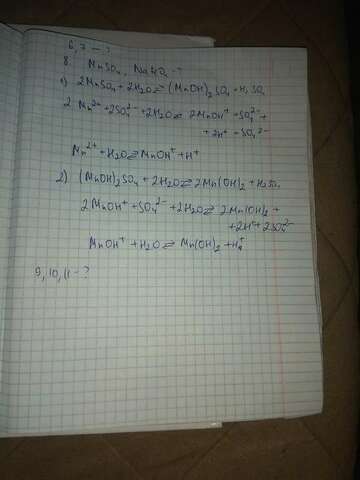 6,7 - ?
8. MnSO4, - ?
1) 2MnSO4 + 2H2O ⇄ (MnOH)2SO4 + H2SO4
2Mn²⁺ + 2SO4²⁻ + 2H2O ⇄ 2MnOH⁺ + SO4²⁻ +
+ 2H⁺ + SO4²⁻
Mn²⁺ + H2O ⇄ MnOH⁺ + H⁺
2) (MnOH)2SO4 + 2H2O ⇄ 2Mn(OH)2 + H2SO4
2MnOH⁺ + SO4²⁻ + 2H2O ⇄ 2Mn(OH)2 +
+ 2H⁺ + 2SO4²⁻
MnOH⁺ + H2O ⇄ Mn(OH)2 + H⁺
9, 10, 11 - ?